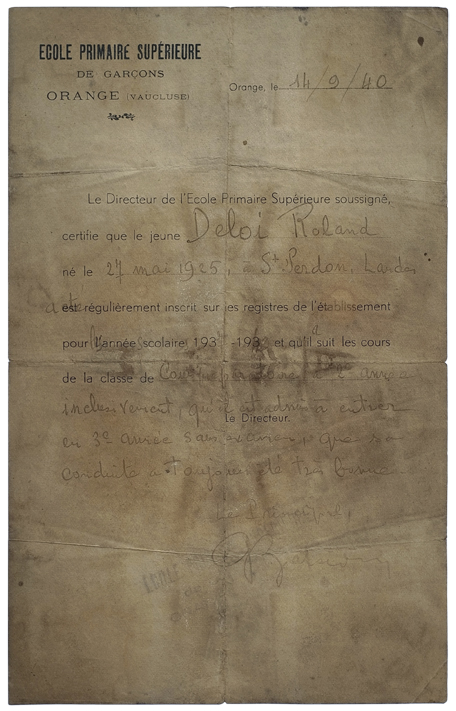 ECOLE PRIMAIRE SUPÉRIEURE
DE GARÇONS
ORANGE (VAUCLUSE)
Orange, le 14/9/40
Le Directeur de l'Ecole Primaire Supérieure soussigné,
certifie que le jeune Deloi Roland
né le 27 mai 1925, à St Perdon, Landes
est régulièrement inscrit sur les registres de l'établissement
pour l'année scolaire 193 -193 et qu'il a suit les cours
de la classe de 2e année
inclusivement, qu'il est admis à entrer
Le Directeur.
en 3e année sans examen, que sa
conduite a toujours été très bonne
Le Principal,
ECOLE